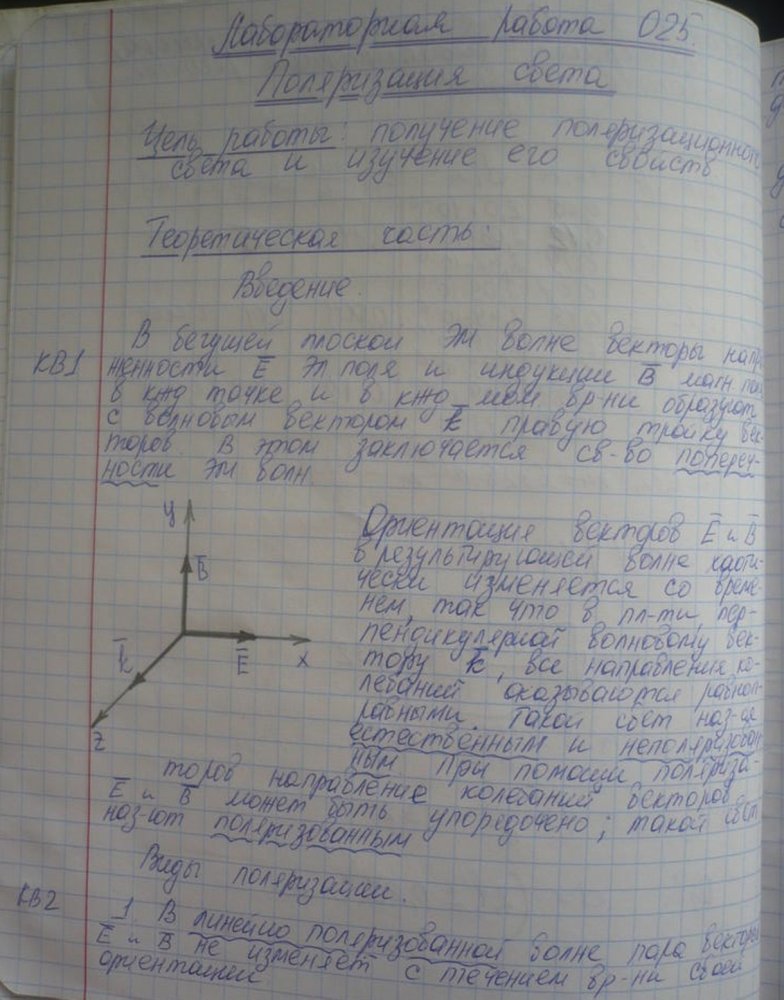 Лабораторная работа 025.
Поляризация света
Цель работы: получение поляризационного
света и изучение его свойств
Теоретическая часть:
Введение.
КВ1
В бегущей плоской ЭМ волне векторы напря-
женности E̅ эл поля и индукции B̅ магн поля
в кжд точке и в кжд мом вр-ни образуют
с волновым вектором k̅ правую тройку век-
торов. В этом заключается св-во попереч-
ности ЭМ волн.
y
B̅
k̅
E̅
x
z
Ориентация векторов E̅ и B̅
в результирующей волне хаоти-
чески изменяется со време-
нем, так что в пл-ти пер-
пендикулярной волновому век-
тору k̅, все направления ко-
лебаний оказываются равноп-
равными. Такой свет наз-ся
естественным и неполяризован
ным. При помощи поляриза-
торов направление колебаний векторов
E̅ и B̅ может быть упорядочено; такой свет
наз-ют поляризованным
Виды поляризации.
КВ2
1. В линейно поляризованной волне пара векторов
E̅ и B̅ не изменяет с течением вр-ни своей
ориентации